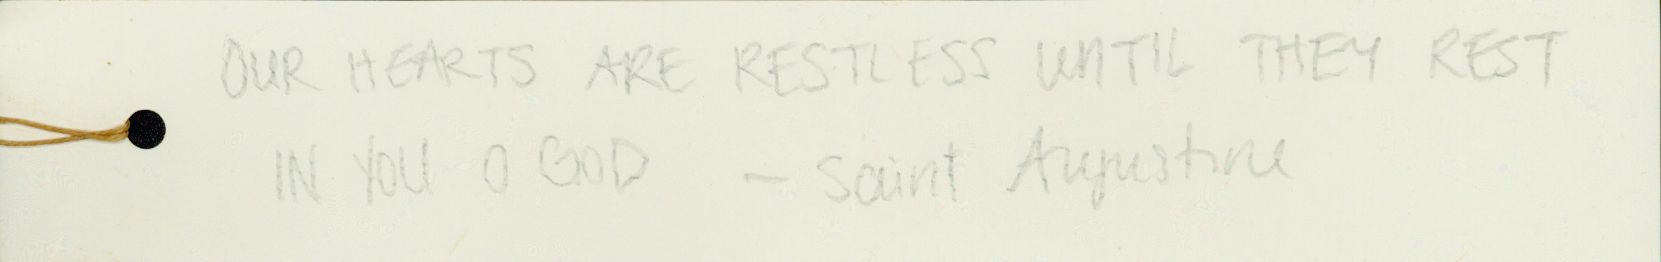 OUR HEARTS ARE RESTLESS UNTIL THEY REST
IN YOU O GOD — Saint Augustine